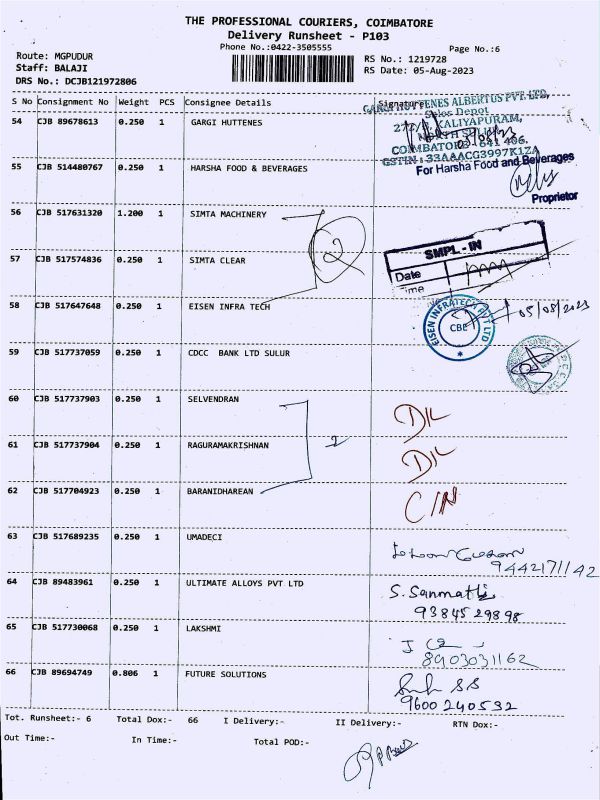 THE PROFESSIONAL COURIERS, COIMBATORE
Delivery Runsheet - P103
Phone No.:0422-3505555
Page No.:6
Route: MGPUDUR
Staff: BALAJI
DRS No.: DCJB121972806
RS No.: 1219728
RS Date: 05-Aug-2023
S No Consignment No Weight PCS Consignee Details Signature
54 CJB 89678613 0.250 1 GARGI HUTTENES
GARGI HUTTENES ALBERTUS PVT. LTD,
Sales Depot
KALIYAPURAM,
COIMBATORE - 641 406.
GSTIN : 33AAACG3997K1ZA
55 CJB 514480767 0.250 1 HARSHA FOOD & BEVERAGES
For Harsha Food and Beverages
Proprietor
56 CJB 517631320 1.200 1 SIMTA MACHINERY
57 CJB 517574836 0.250 1 SIMTA CLEAR
SMPL - IN
Date
Time
58 CJB 517647648 0.250 1 EISEN INFRA TECH
EISEN INFRATECH PVT LTD
CBE
05/08/2023
59 CJB 517737059 0.250 1 CDCC BANK LTD SULUR
60 CJB 517737903 0.250 1 SELVENDRAN
D/L
61 CJB 517737904 0.250 1 RAGURAMAKRISHNAN
2
D/L
62 CJB 517704923 0.250 1 BARANIDHAREAN
63 CJB 517689235 0.250 1 UMADECI
9442171142
64 CJB 89483961 0.250 1 ULTIMATE ALLOYS PVT LTD
S. Sanmathi
93845 29898
65 CJB 517730068 0.250 1 LAKSHMI
8903031162
66 CJB 89694749 0.806 1 FUTURE SOLUTIONS
9600240532
Tot. Runsheet:- 6 Total Dox:- 66 I Delivery:- II Delivery:- RTN Dox:-
Out Time:- In Time:- Total POD:-